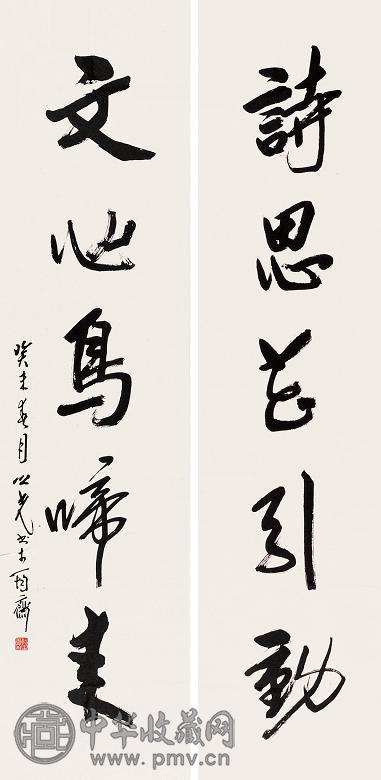 詩思花引動
文心鳥啼來
癸未春月
中华收藏网
www.pmv.cn